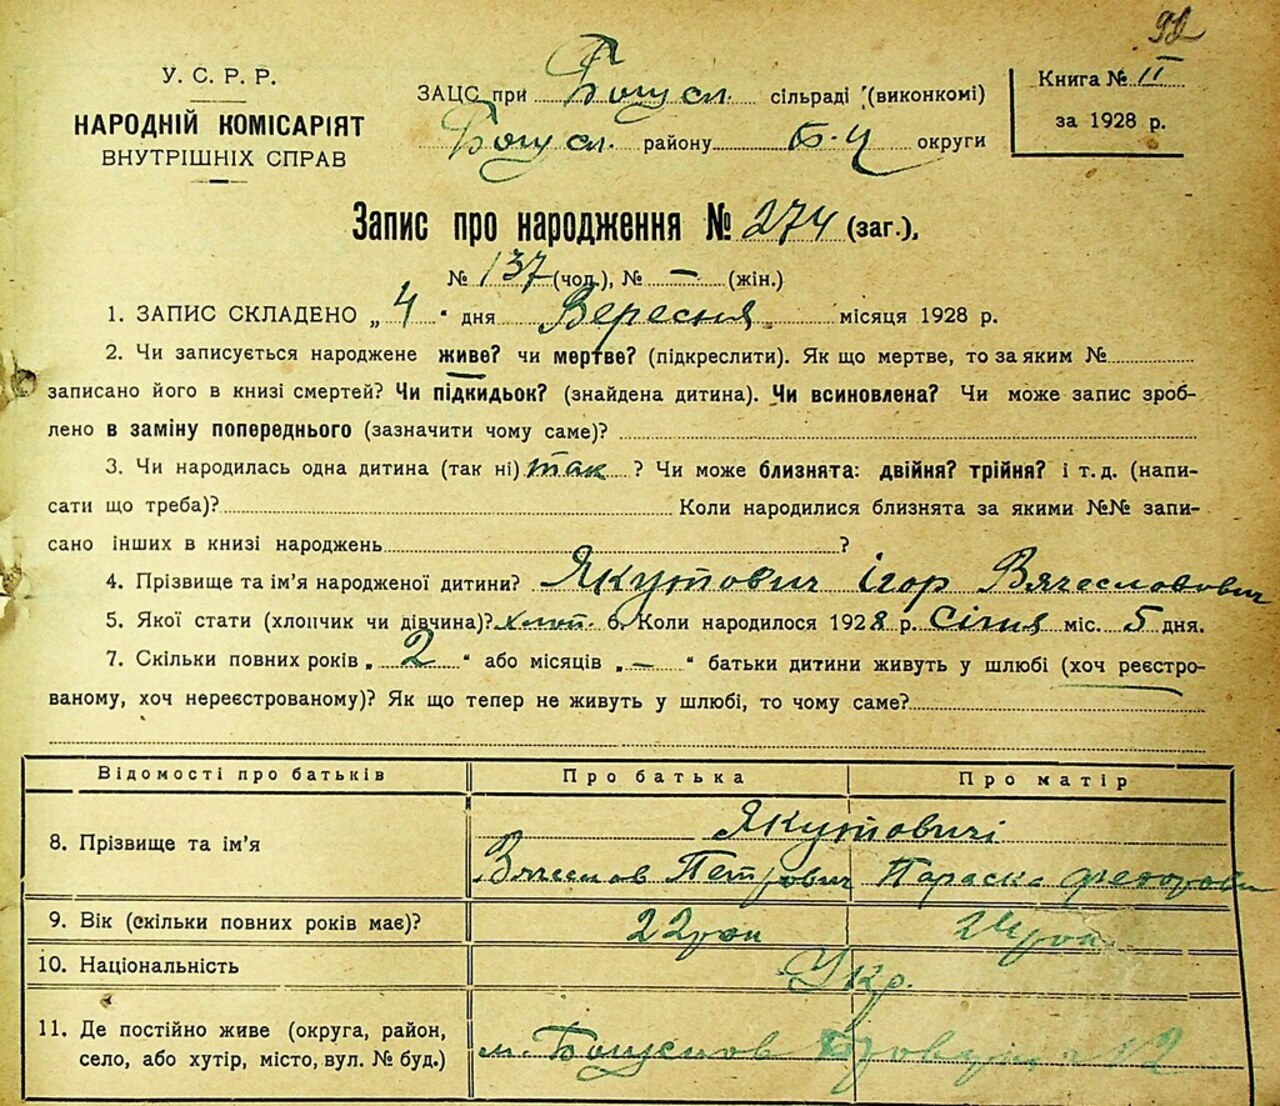 92
У. С. Р. Р.
НАРОДНІЙ КОМІСАРІЯТ
ВНУТРІШНІХ СПРАВ
ЗАЦС при Богусл. сільраді (виконкомі)
Богусл. району Б-Ц округи
Книга № II
за 1928 р.
Запис про народження № 274 (заг.),
№ 137 (чол.), № — (жін.)
1. ЗАПИС СКЛАДЕНО „ 4 " дня Вересня місяця 1928 р.
2. Чи записується народжене живе? чи мертве? (підкреслити). Як що мертве, то за яким №
записано його в книзі смертей? Чи підкидьок? (знайдена дитина). Чи всиновлена? Чи може запис зроб-
лено в заміну попереднього (зазначити чому саме)?
3. Чи народилась одна дитина (так ні) так ? Чи може близнята: двійня? трійня? і т. д. (напи-
сати що треба)? Коли народилися близнята за якими №№ запи-
сано інших в книзі народжень ?
4. Прізвище та ім'я народженої дитини? Якутович Ігор Вячеславович
5. Якої стати (хлопчик чи дівчина)? хлоп. 6. Коли народилося 1928 р. Січня міс. 5 дня.
7. Скільки повних років „ 2 " або місяців „ — " батьки дитини живуть у шлюбі (хоч реєстро-
ваному, хоч нереєстрованому)? Як що тепер не живуть у шлюбі, то чому саме?
Відомості про батьків Про батька Про матір
8. Прізвище та ім'я Якутовичі
Вячеслав Петрович Параска
9. Вік (скільки повних років має)? 22 рок 24 рок
10. Національність Укр.
11. Де постійно живе (округа, район,
село, або хутір, місто, вул. № буд.) м. Богуслав 12